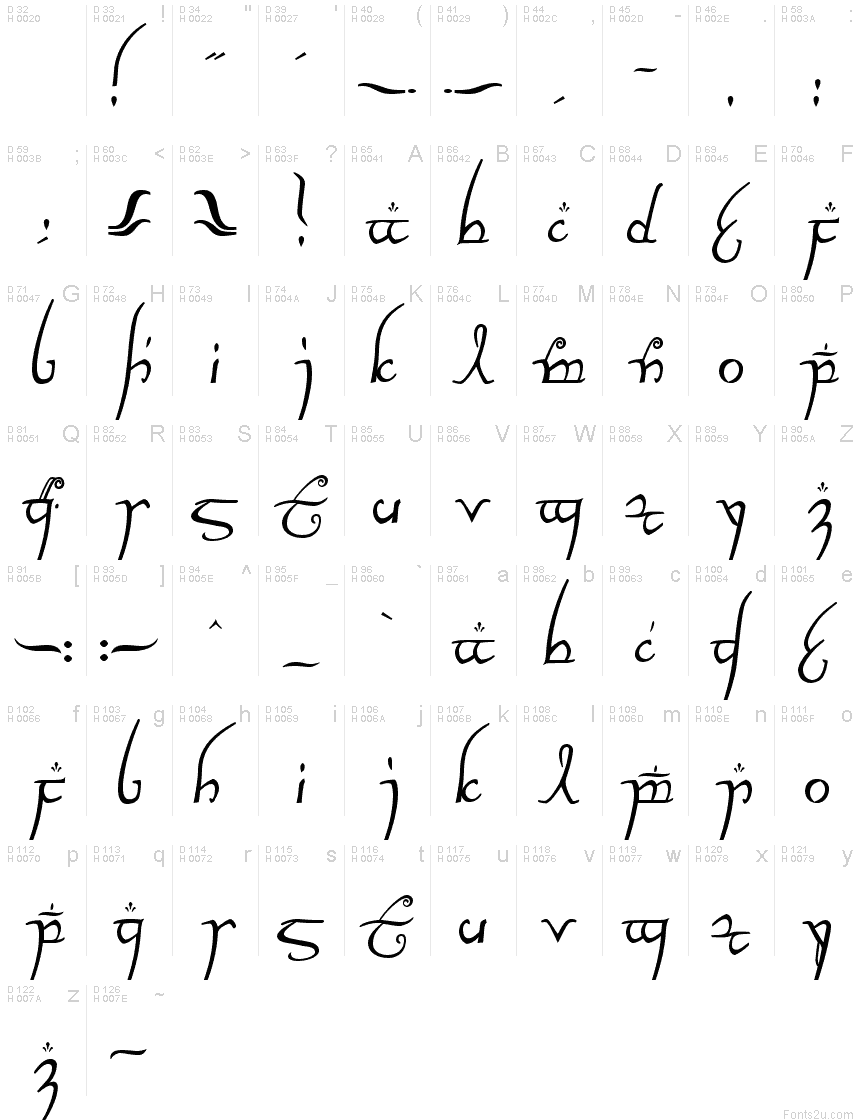 D 32 H 0020 D 33 H 0021 ! D 34 H 0022 " D 39 H 0027 ' D 40 H 0028 ( D 41 H 0029 ) D 44 H 002C , D 45 H 002D - D 46 H 002E . D 58 H 003A :
! " ' ( ) , - . :
D 59 H 003B ; D 60 H 003C < D 62 H 003E > D 63 H 003F ? D 65 H 0041 A D 66 H 0042 B D 67 H 0043 C D 68 H 0044 D D 69 H 0045 E D 70 H 0046 F
; < > ? A B C D E F
D 71 H 0047 G D 72 H 0048 H D 73 H 0049 I D 74 H 004A J D 75 H 004B K D 76 H 004C L D 77 H 004D M D 78 H 004E N D 79 H 004F O D 80 H 0050 P
G H I J K L M N O P
D 81 H 0051 Q D 82 H 0052 R D 83 H 0053 S D 84 H 0054 T D 85 H 0055 U D 86 H 0056 V D 87 H 0057 W D 88 H 0058 X D 89 H 0059 Y D 90 H 005A Z
Q R S T U V W X Y Z
D 91 H 005B [ D 93 H 005D ] D 94 H 005E ^ D 95 H 005F _ D 96 H 0060 ` D 97 H 0061 a D 98 H 0062 b D 99 H 0063 c D 100 H 0064 d D 101 H 0065 e
[ ] ^ _ ` a b c d e
D 102 H 0066 f D 103 H 0067 g D 104 H 0068 h D 105 H 0069 i D 106 H 006A j D 107 H 006B k D 108 H 006C l D 109 H 006D m D 110 H 006E n D 111 H 006F o
f g h i j k l m n o
D 112 H 0070 p D 113 H 0071 q D 114 H 0072 r D 115 H 0073 s D 116 H 0074 t D 117 H 0075 u D 118 H 0076 v D 119 H 0077 w D 120 H 0078 x D 121 H 0079 y
p q r s t u v w x y
D 122 H 007A z D 126 H 007E ~
z ~
Fonts2u.com